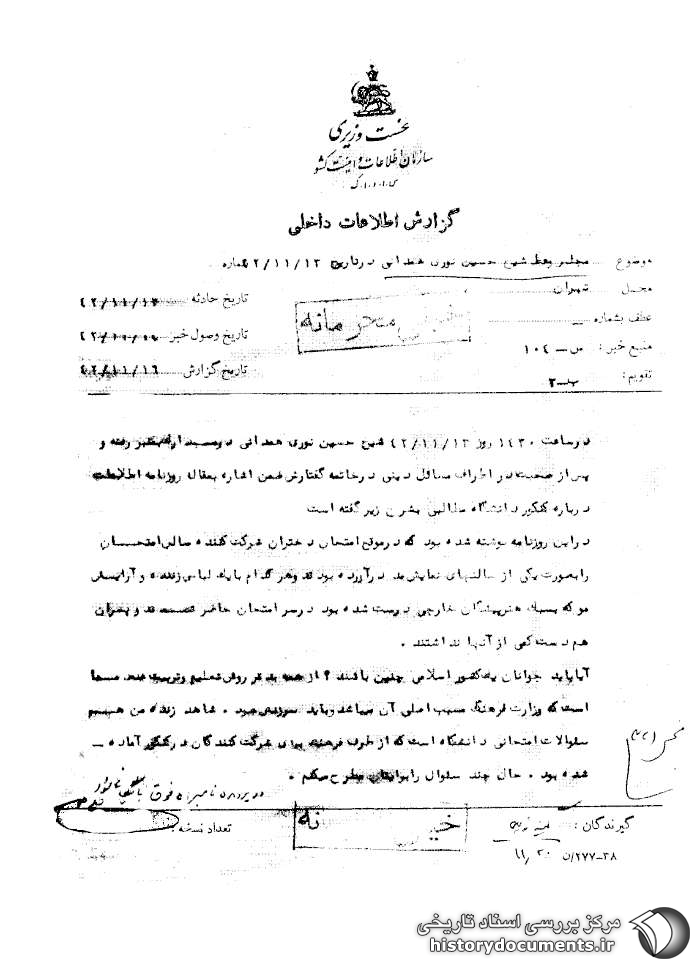 نخست وزیری
سازمان اطلاعات و امنیت کشور
س.ا.و.ا.ک
گزارش اطلاعات داخلی
موضوع مجلس وعظ شیخ حسین نوری همدانی در تاریخ ۴۲/۱۱/۱۳ شماره
محل تهران
تاریخ حادثه ۴۲/۱۱/۱۳
خیلی محرمانه
عطف بشماره
تاریخ وصول خبر
منبع خبر: س - ۱۰۴
تاریخ گزارش ۴۲/۱۱/۱۶
تقویم: ب-۲
در ساعت ۱۴۳۰ روز ۴۲/۱۱/۱۳ شیخ حسین نوری همدانی در مسجد ارک بمنبر رفته و
پس از صحبت در اطراف مسائل دینی در خاتمه گفتارش ضمن اشاره بمقاله روزنامه اطلاعات
درباره کنکور دانشگاه مطالبی بشرح زیر گفته است
در این روزنامه نوشته شده بود که در موقع امتحان دختران شرکت کننده سالن امتحان
را بصورت یکی از سالنهای نمایش مد در آورده بودند و هر کدام با یک لباس زننده و آرایش
مو که بسبک هنرپیشگان خارجی درست شده بود در سر امتحان حاضر شده بودند و پسران
هم دست کمی از آنها نداشتند .
آیا باید جوانان یک کشور اسلامی چنین باشند ؟ از همه بدتر روش تعلیم و تربیت
است که وزارت فرهنگ مسبب اصلی آن میباشد و باید سرزنش شود . شاهد زنده من همین
سئوالات امتحانی دانشگاه است که از طرف فرهنگ برای شرکت کنندگان در کنکور آماده -
شده بود . حال چند سئوال را برایتان مطرح میکنم .
در پرونده نامبرده فوق
گیرندگان :
خیلی محرمانه
تعداد نسخه
۲۷۷-۳۸/ن
مرکز بررسی اسناد تاریخی
historydocuments.ir